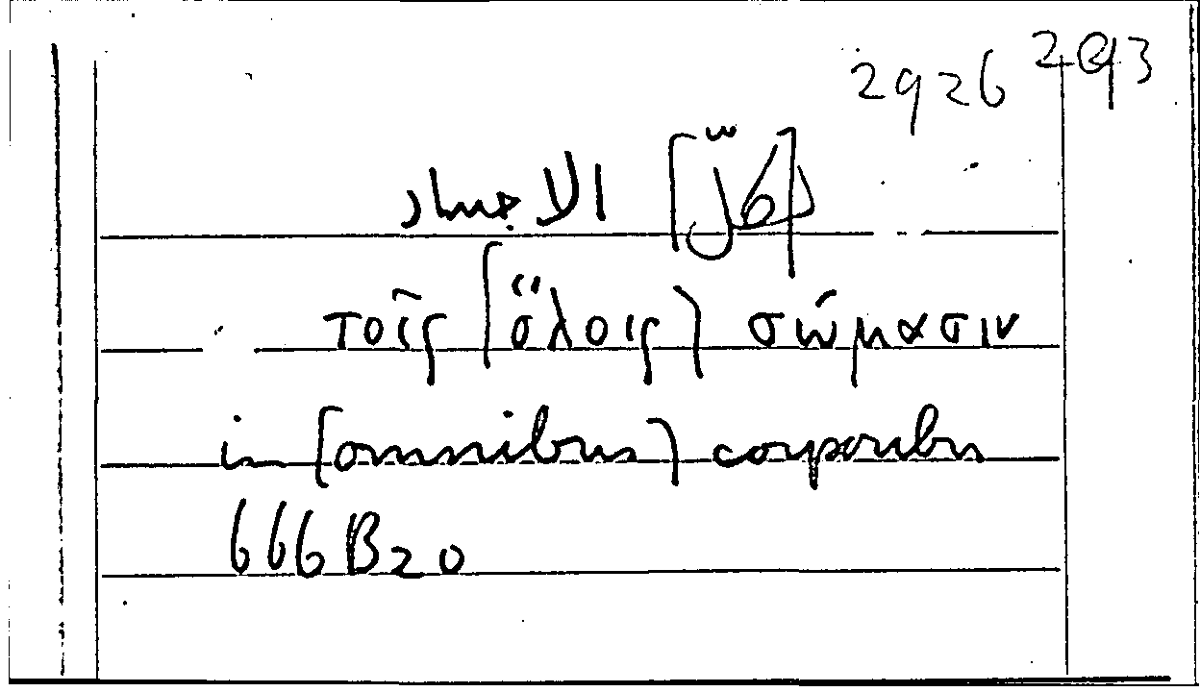 2926 2093
[كلّ] الاجساد
τοῖς [ὅλοις] σώμασιν
in [omnibus] corporibus
666B20